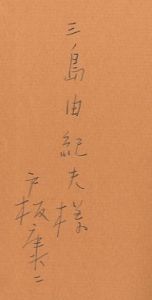 三島由紀夫様
戸板康二